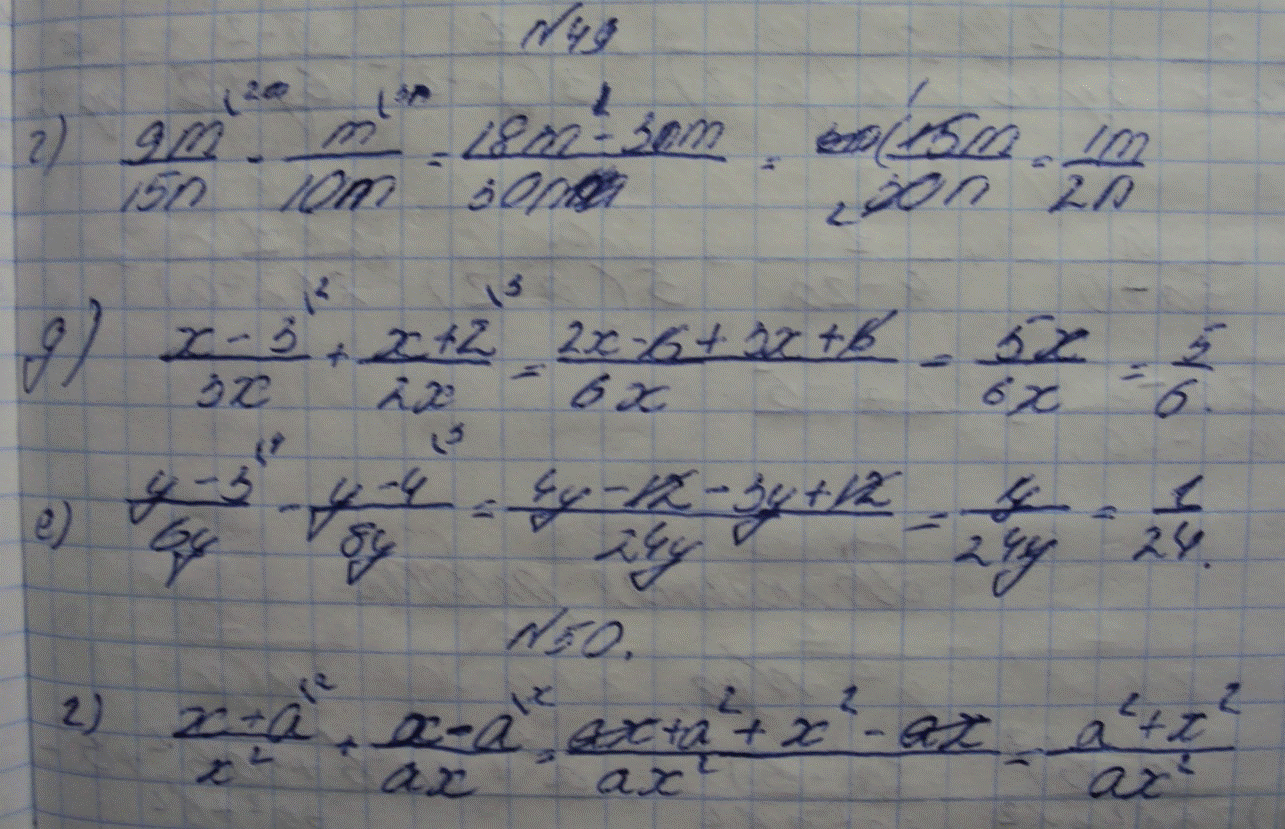 №49
г) 9m/15n - m/10m = 18m - 3nm/30n = 15m/30n = 1m/2n
д) x-3/3x + x+2/2x = 2x-6+3x+6/6x = 5x/6x = 5/6.
е) y-3/6y - y-4/8y = 4y-12-3y+12/24y = y/24y = 1/24.
№50.
г) x+a/x² + x-a/ax = ax+a²+x²-ax/ax² = a²+x²/ax²